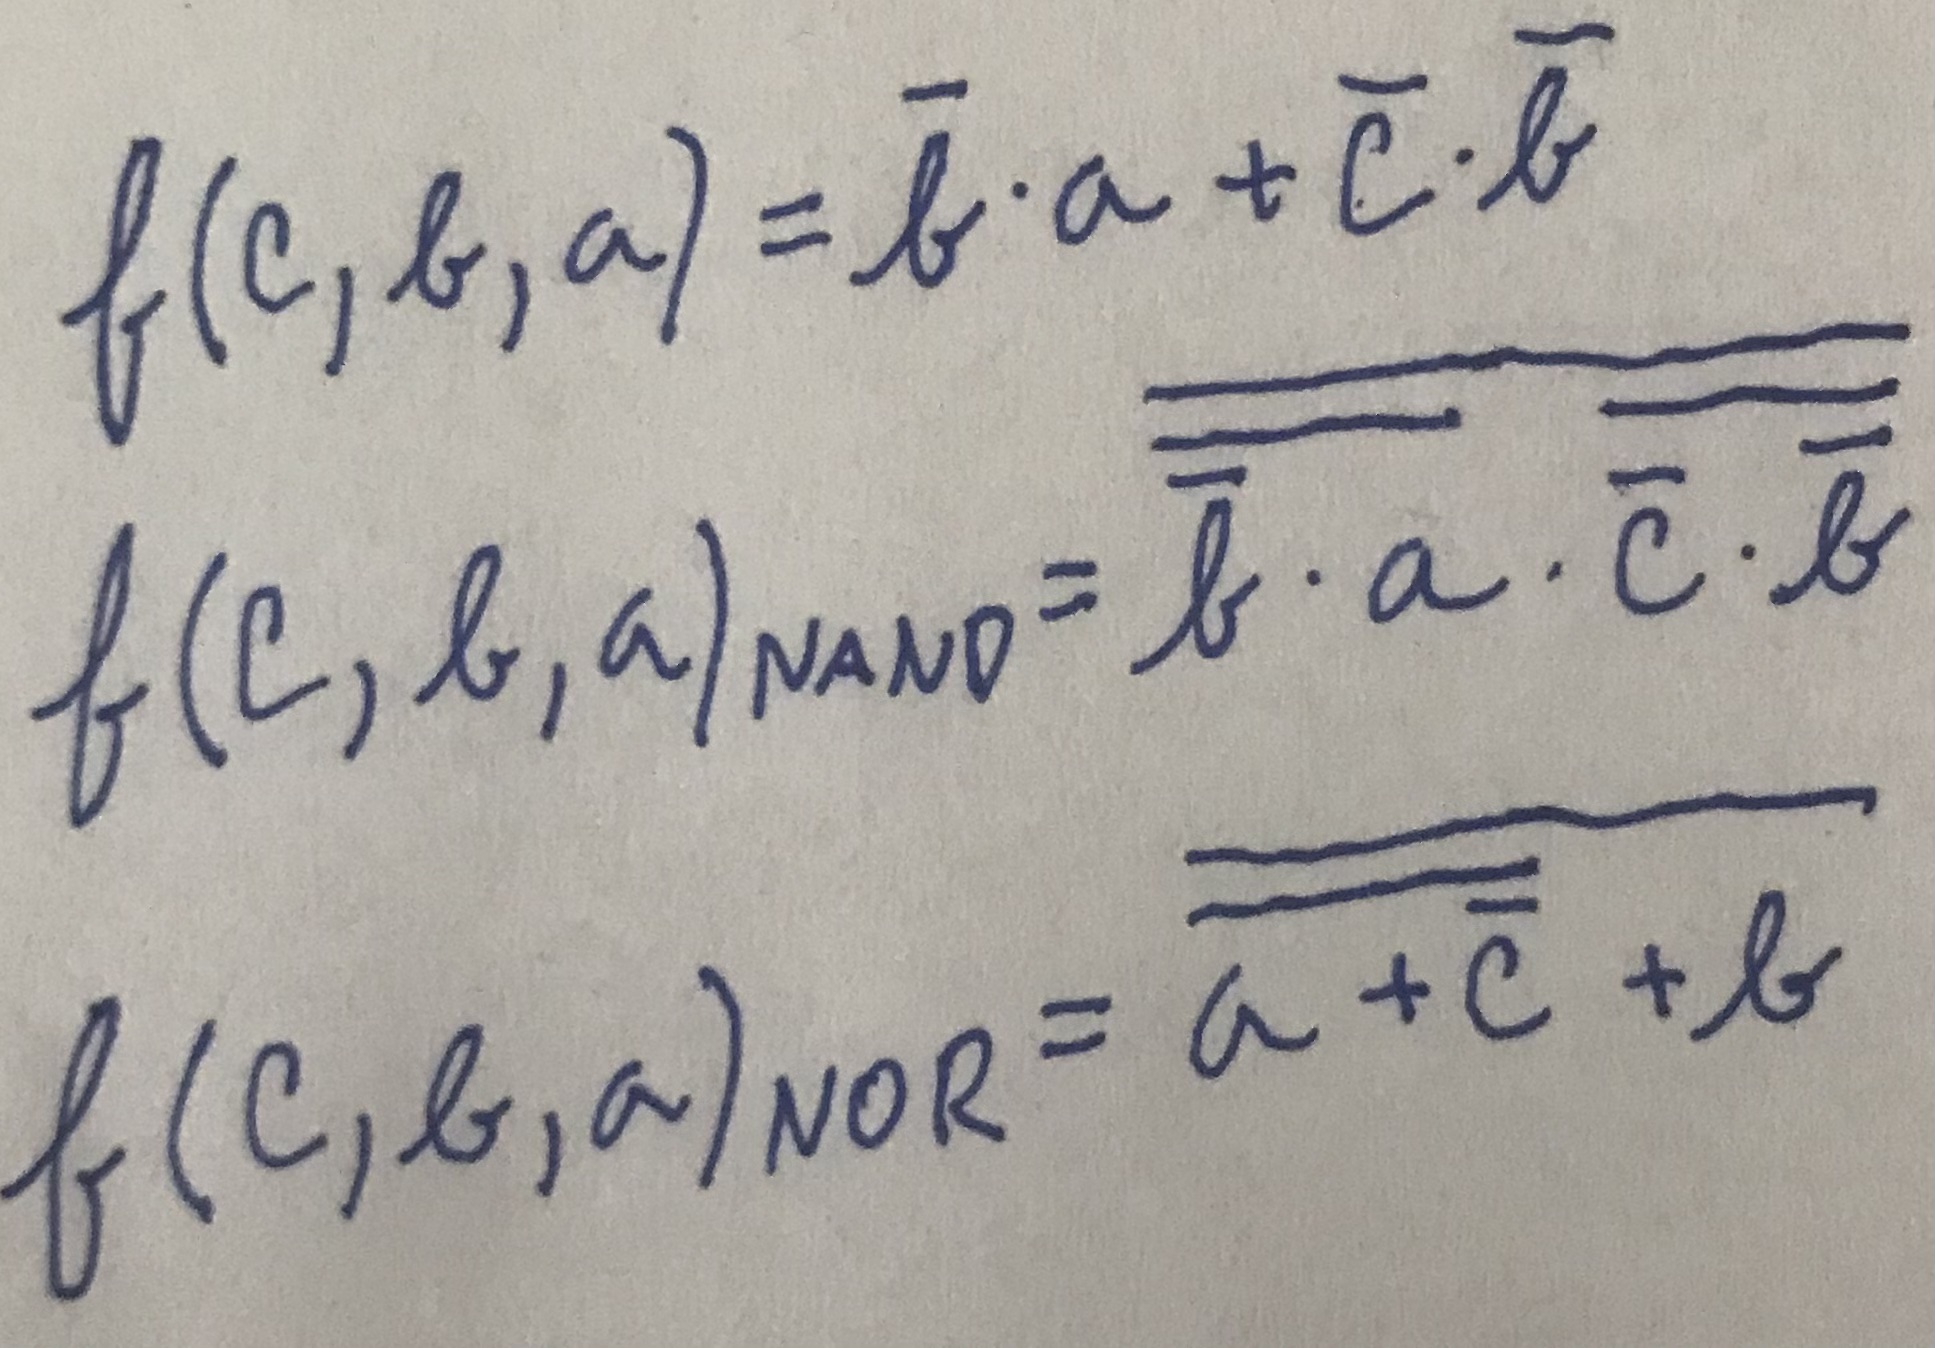 f(c, b, a) = \overline{b} \cdot a + \overline{c} \cdot \overline{b}
f(c, b, a)_{NAND} = \overline{\overline{\overline{b} \cdot a} \cdot \overline{\overline{c} \cdot \overline{b}}}
f(c, b, a)_{NOR} = \overline{\overline{a + \overline{c}} + b}